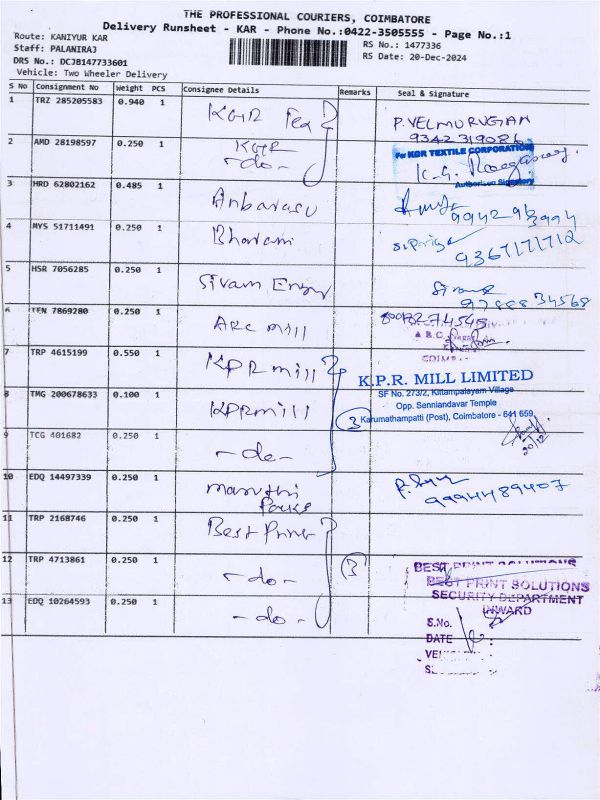 THE PROFESSIONAL COURIERS, COIMBATORE
Delivery Runsheet - KAR - Phone No.:0422-3505555 - Page No.:1
Route: KANIYUR KAR
RS No.: 1477336
Staff: PALANIRAJ
RS Date: 20-Dec-2024
DRS No.: DCJB147733601
Vehicle: Two Wheeler Delivery
S No Consignment No Weight PCS Consignee Details Remarks Seal & Signature
1 TRZ 285205583 0.940 1 KGR Tex P.VELMURUGAN
9342319086
2 AMD 28198597 0.250 1 KGR
-do-
For KGR TEXTILE CORPORATION
Authorised Signatory
3 HRD 62802162 0.485 1 Anbarasu
4 MYS 51711491 0.250 1 Bharani
9367171712
5 HSR 7056285 0.250 1 Sivam Engg
9788834568
6 TEN 7869280 0.250 1 ARC mill
7 TRP 4615199 0.550 1 KPR mill
K.P.R. MILL LIMITED
SF No. 273/2, Kittampalayam Village
Opp. Senniandavar Temple
Karumathampatti (Post), Coimbatore - 641 659.
8 TMG 200678633 0.100 1 KPR mill 3
20/12
9 TCG 401682 0.250 1 -do-
10 EDQ 14497339 0.250 1 maruthi
9994489407
11 TRP 2168746 0.250 1 Best Print
12 TRP 4713861 0.250 1 -do- 3
BEST PRINT SOLUTIONS
BEST PRINT SOLUTIONS
SECURITY DEPARTMENT
INWARD
13 EDQ 10264593 0.250 1 -do-
S.No.
DATE :